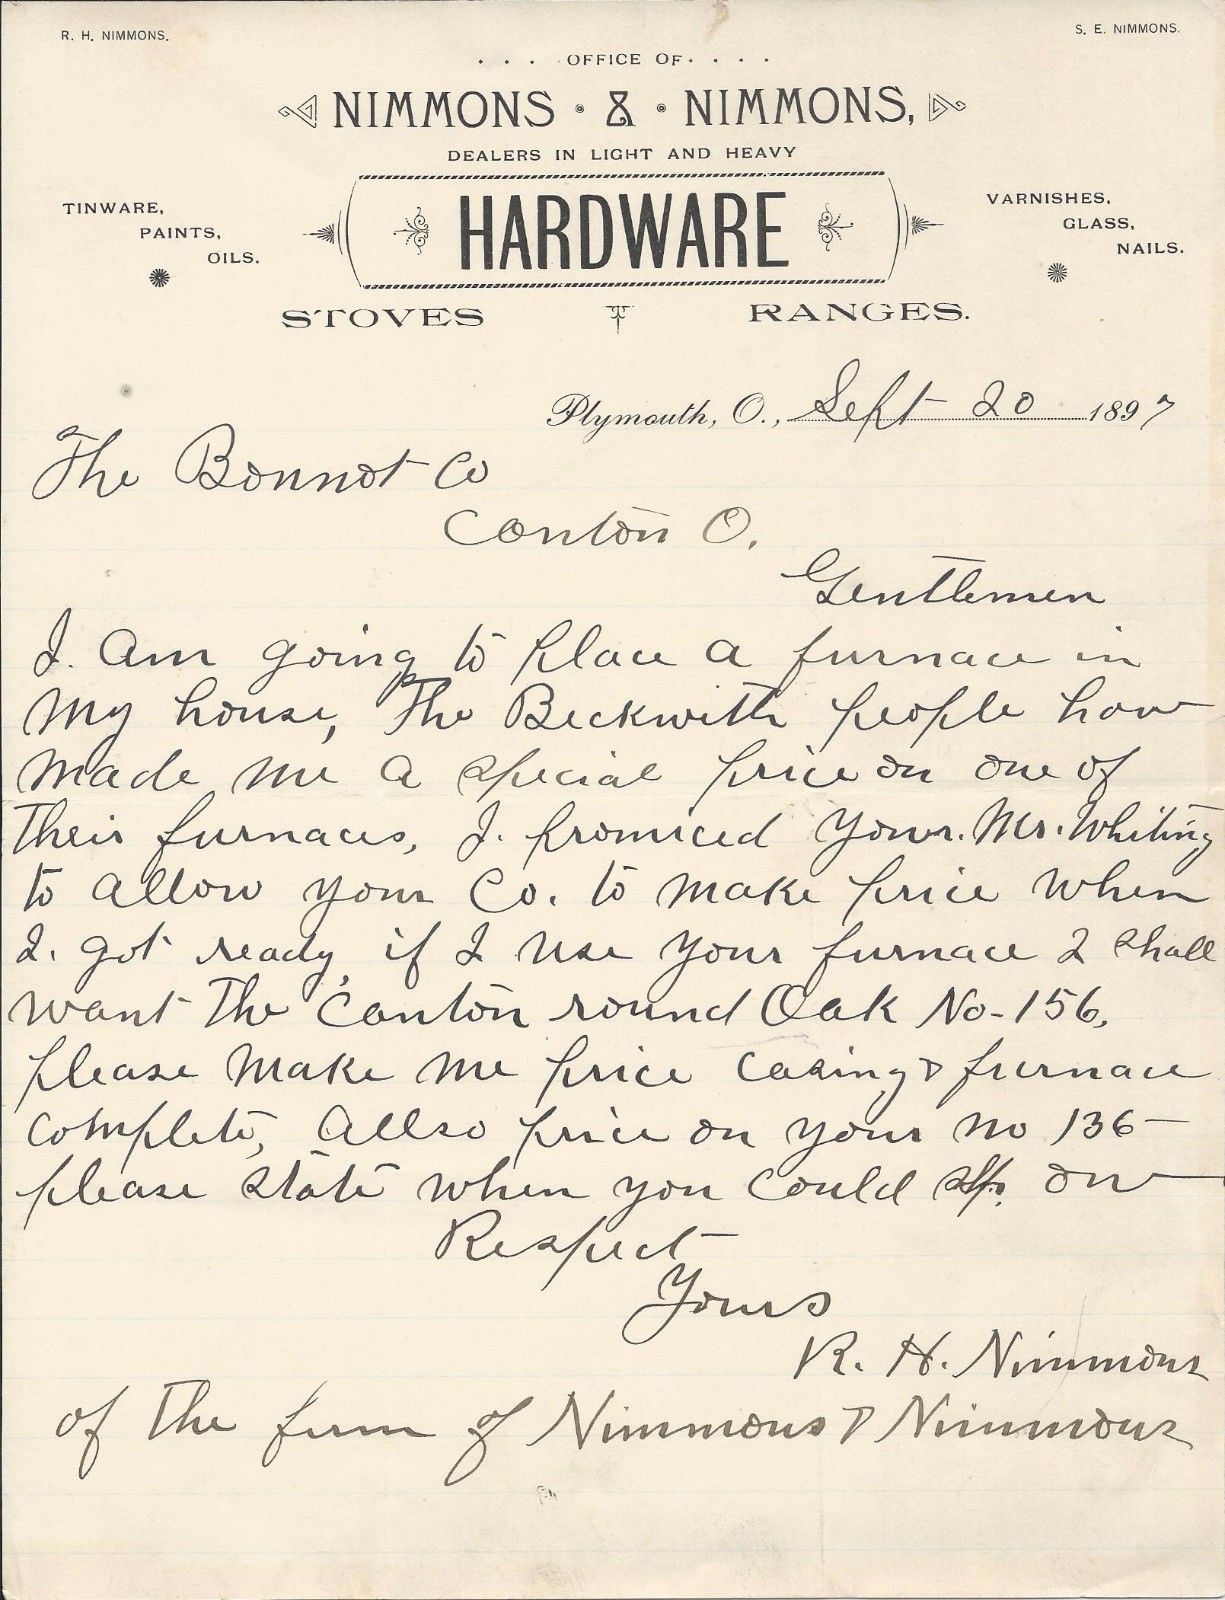 R. H. NIMMONS.
S. E. NIMMONS.
. . . OFFICE OF. . . .
NIMMONS & NIMMONS,
DEALERS IN LIGHT AND HEAVY
HARDWARE
TINWARE,
PAINTS,
OILS.
VARNISHES,
GLASS,
NAILS.
STOVES
RANGES.
Plymouth, O., Sept 20 1897
The Bonnot Co
Canton O.
Gentlemen
I. am going to place a furnace in
my house, The Beckwith people have
made me a special price on one of
their furnaces, I. promiced your. Mr. Whiting
to allow your Co. to make price when
I. got ready, if I use your furnace I shall
want the Canton round Oak No-156,
please make me price casing & furnace
complete, Allso price on your no 136-
please state when you could
Respect
Yours
R. H. Nimmons
of the firm of Nimmons & Nimmons